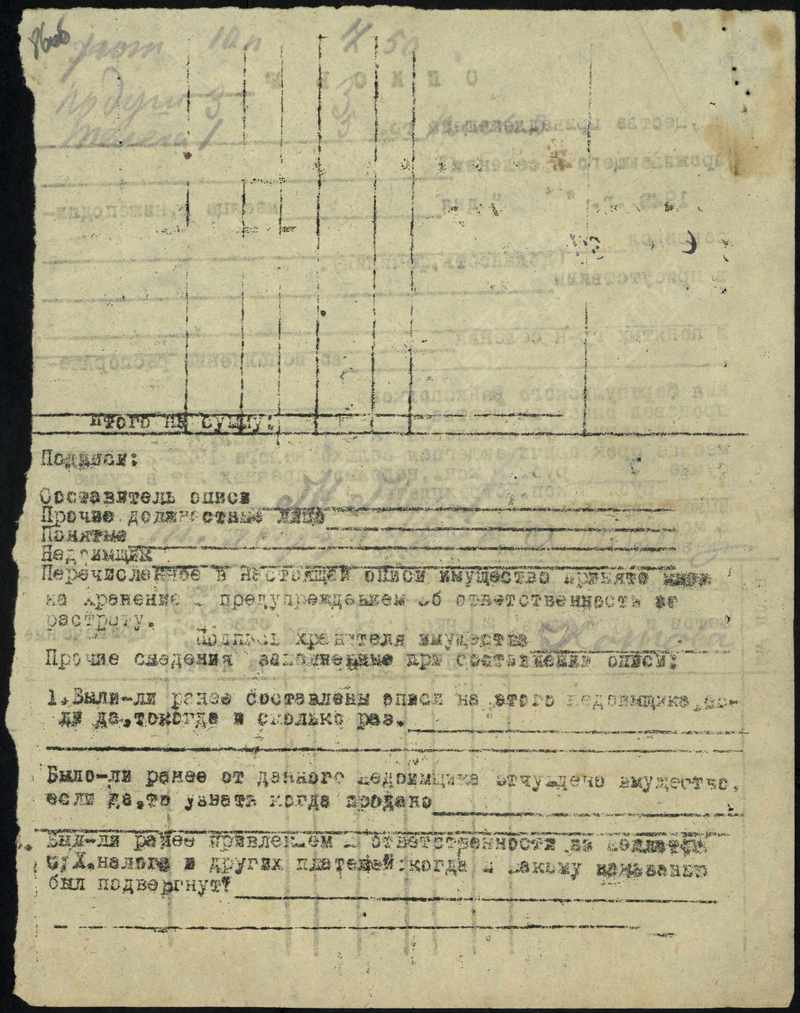 10 п 4 50
3 3
телега 1 5
Итого на сумму:
Подписи:
Составитель описи
Прочие должностные лица
Понятые
Недоимщик
Перечисленное в настоящей описи имущество принято мною
на хранение с предупреждением об ответственности за
растрату.
Подпись хранителя имущества
Прочие сведения заполненные при составлении описи:
1. Были-ли ранее составлены описи на этого недоимщика, ес-
ли да, то когда и сколько раз.
Было-ли ранее от данного недоимщика отчуждено имущество,
если да, то узнать когда продано
Был-ли ранее привлечен к ответственности за
С.Х. налога и других платежей: когда и какому наказанию
был подвергнут?